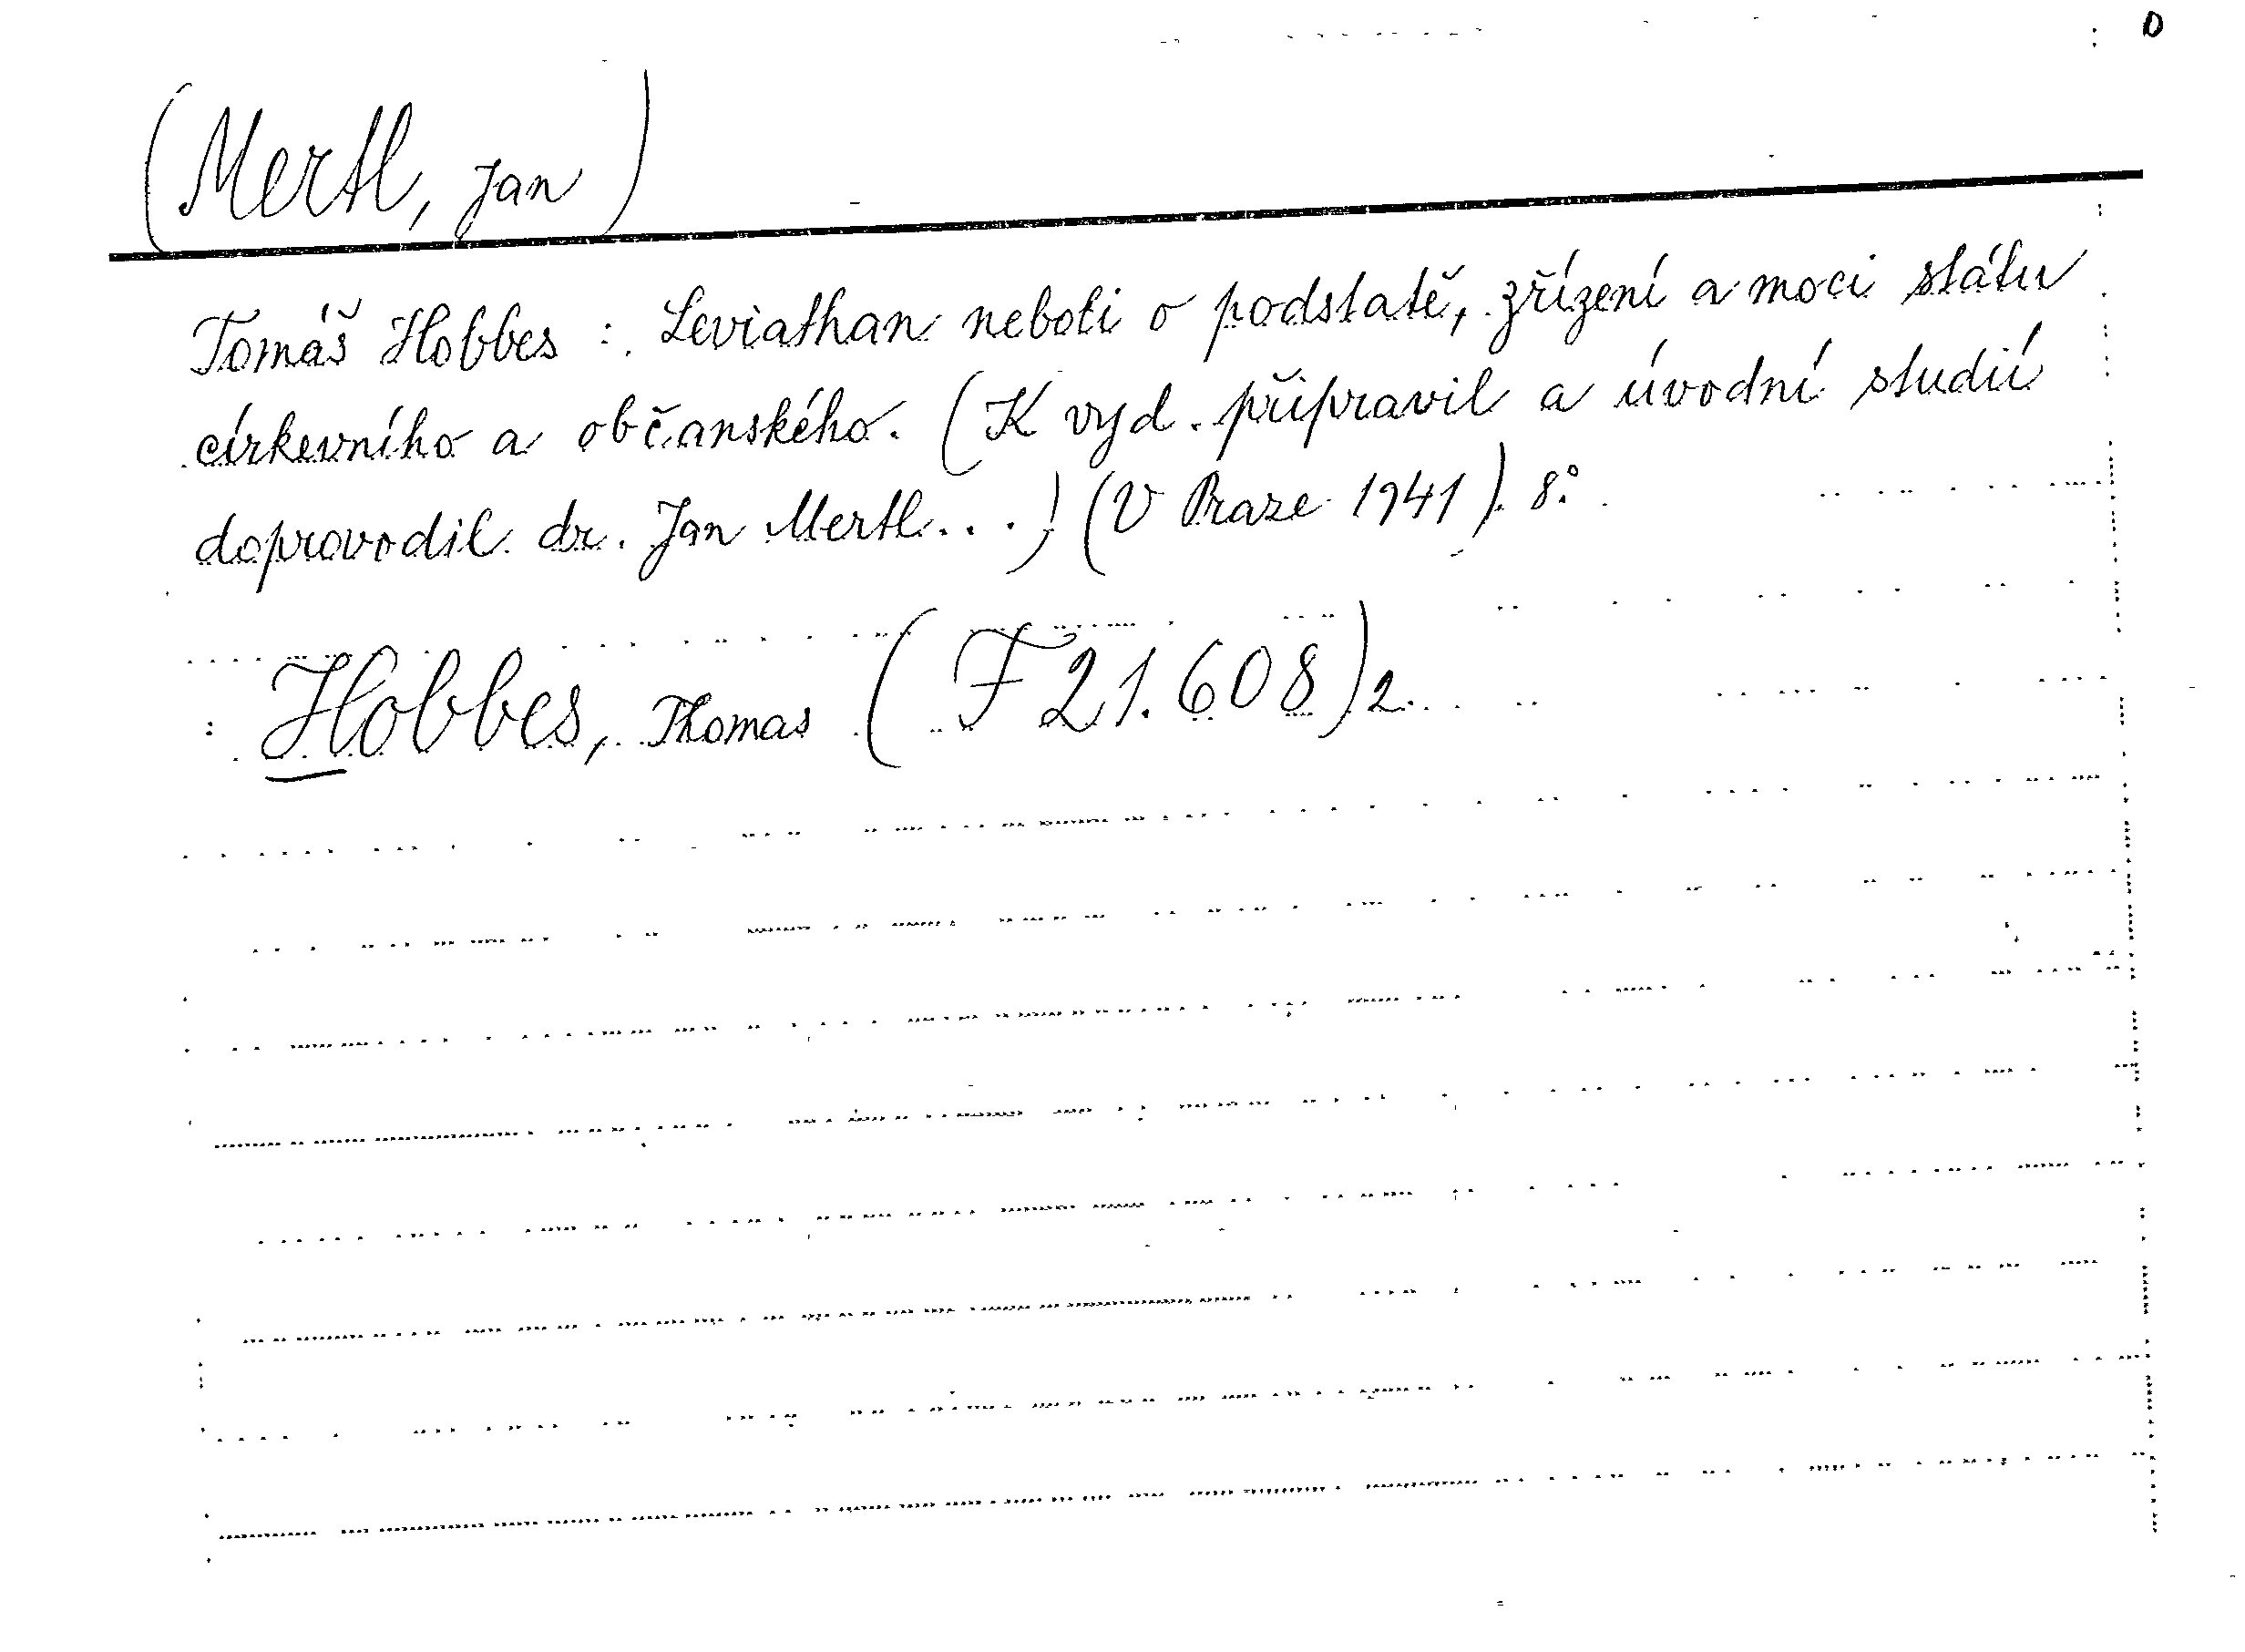 D
(Mertl, Jan)
Tomáš Hobbes: Leviathan neboli o podstatě, zřízení a moci státu
církevního a občanského. (K vyd. připravil a úvodní studií
doprovodil dr. Jan Mertl...) (V Praze 1941). 8°.
Hobbes, Thomas (F 21.608) 2.